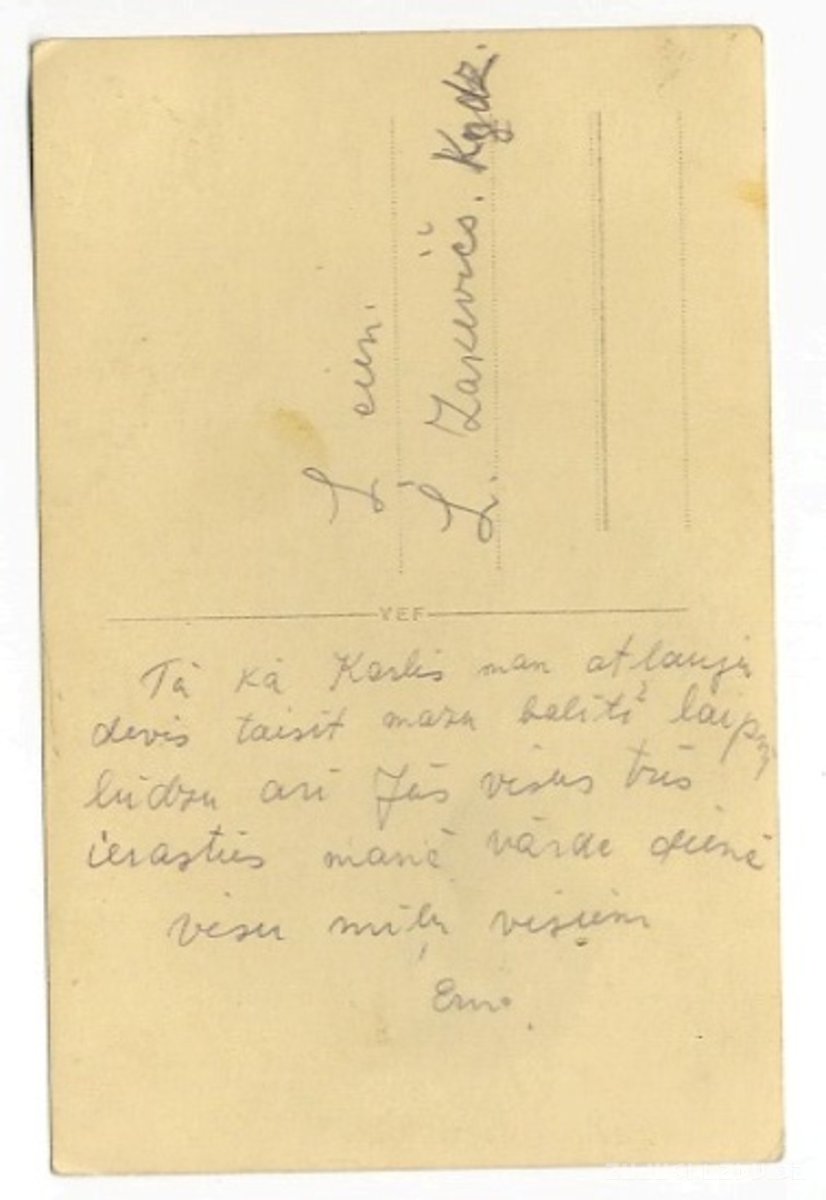 L cien.
L. Zakevičs. Kgdz.
VEF
Tā kā Karlis man atlauju
devis taisīt mazu balīti laipņi
lūdzu arī Jūs visus trīs
ierasties manā vārde dienā
visu mīļu visiem